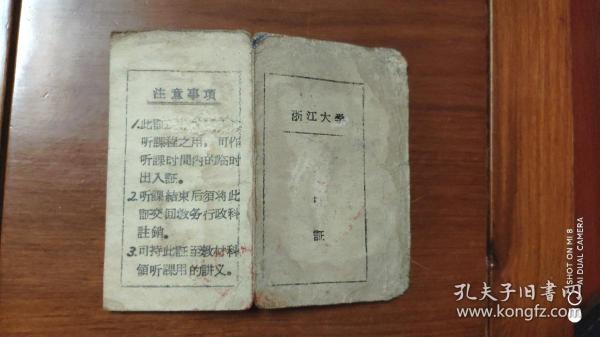 注意事項
1.此証
听課程之用，可作
听課时間内的临时
出入証。
2.听課結束后須将此
証交回教务行政科
註銷。
3.可持此証至教材科
領听課用的讲义。
浙江大学
証
SHOT ON MI 8
AI DUAL CAMERA
孔夫子旧书网
www.kongfz.com